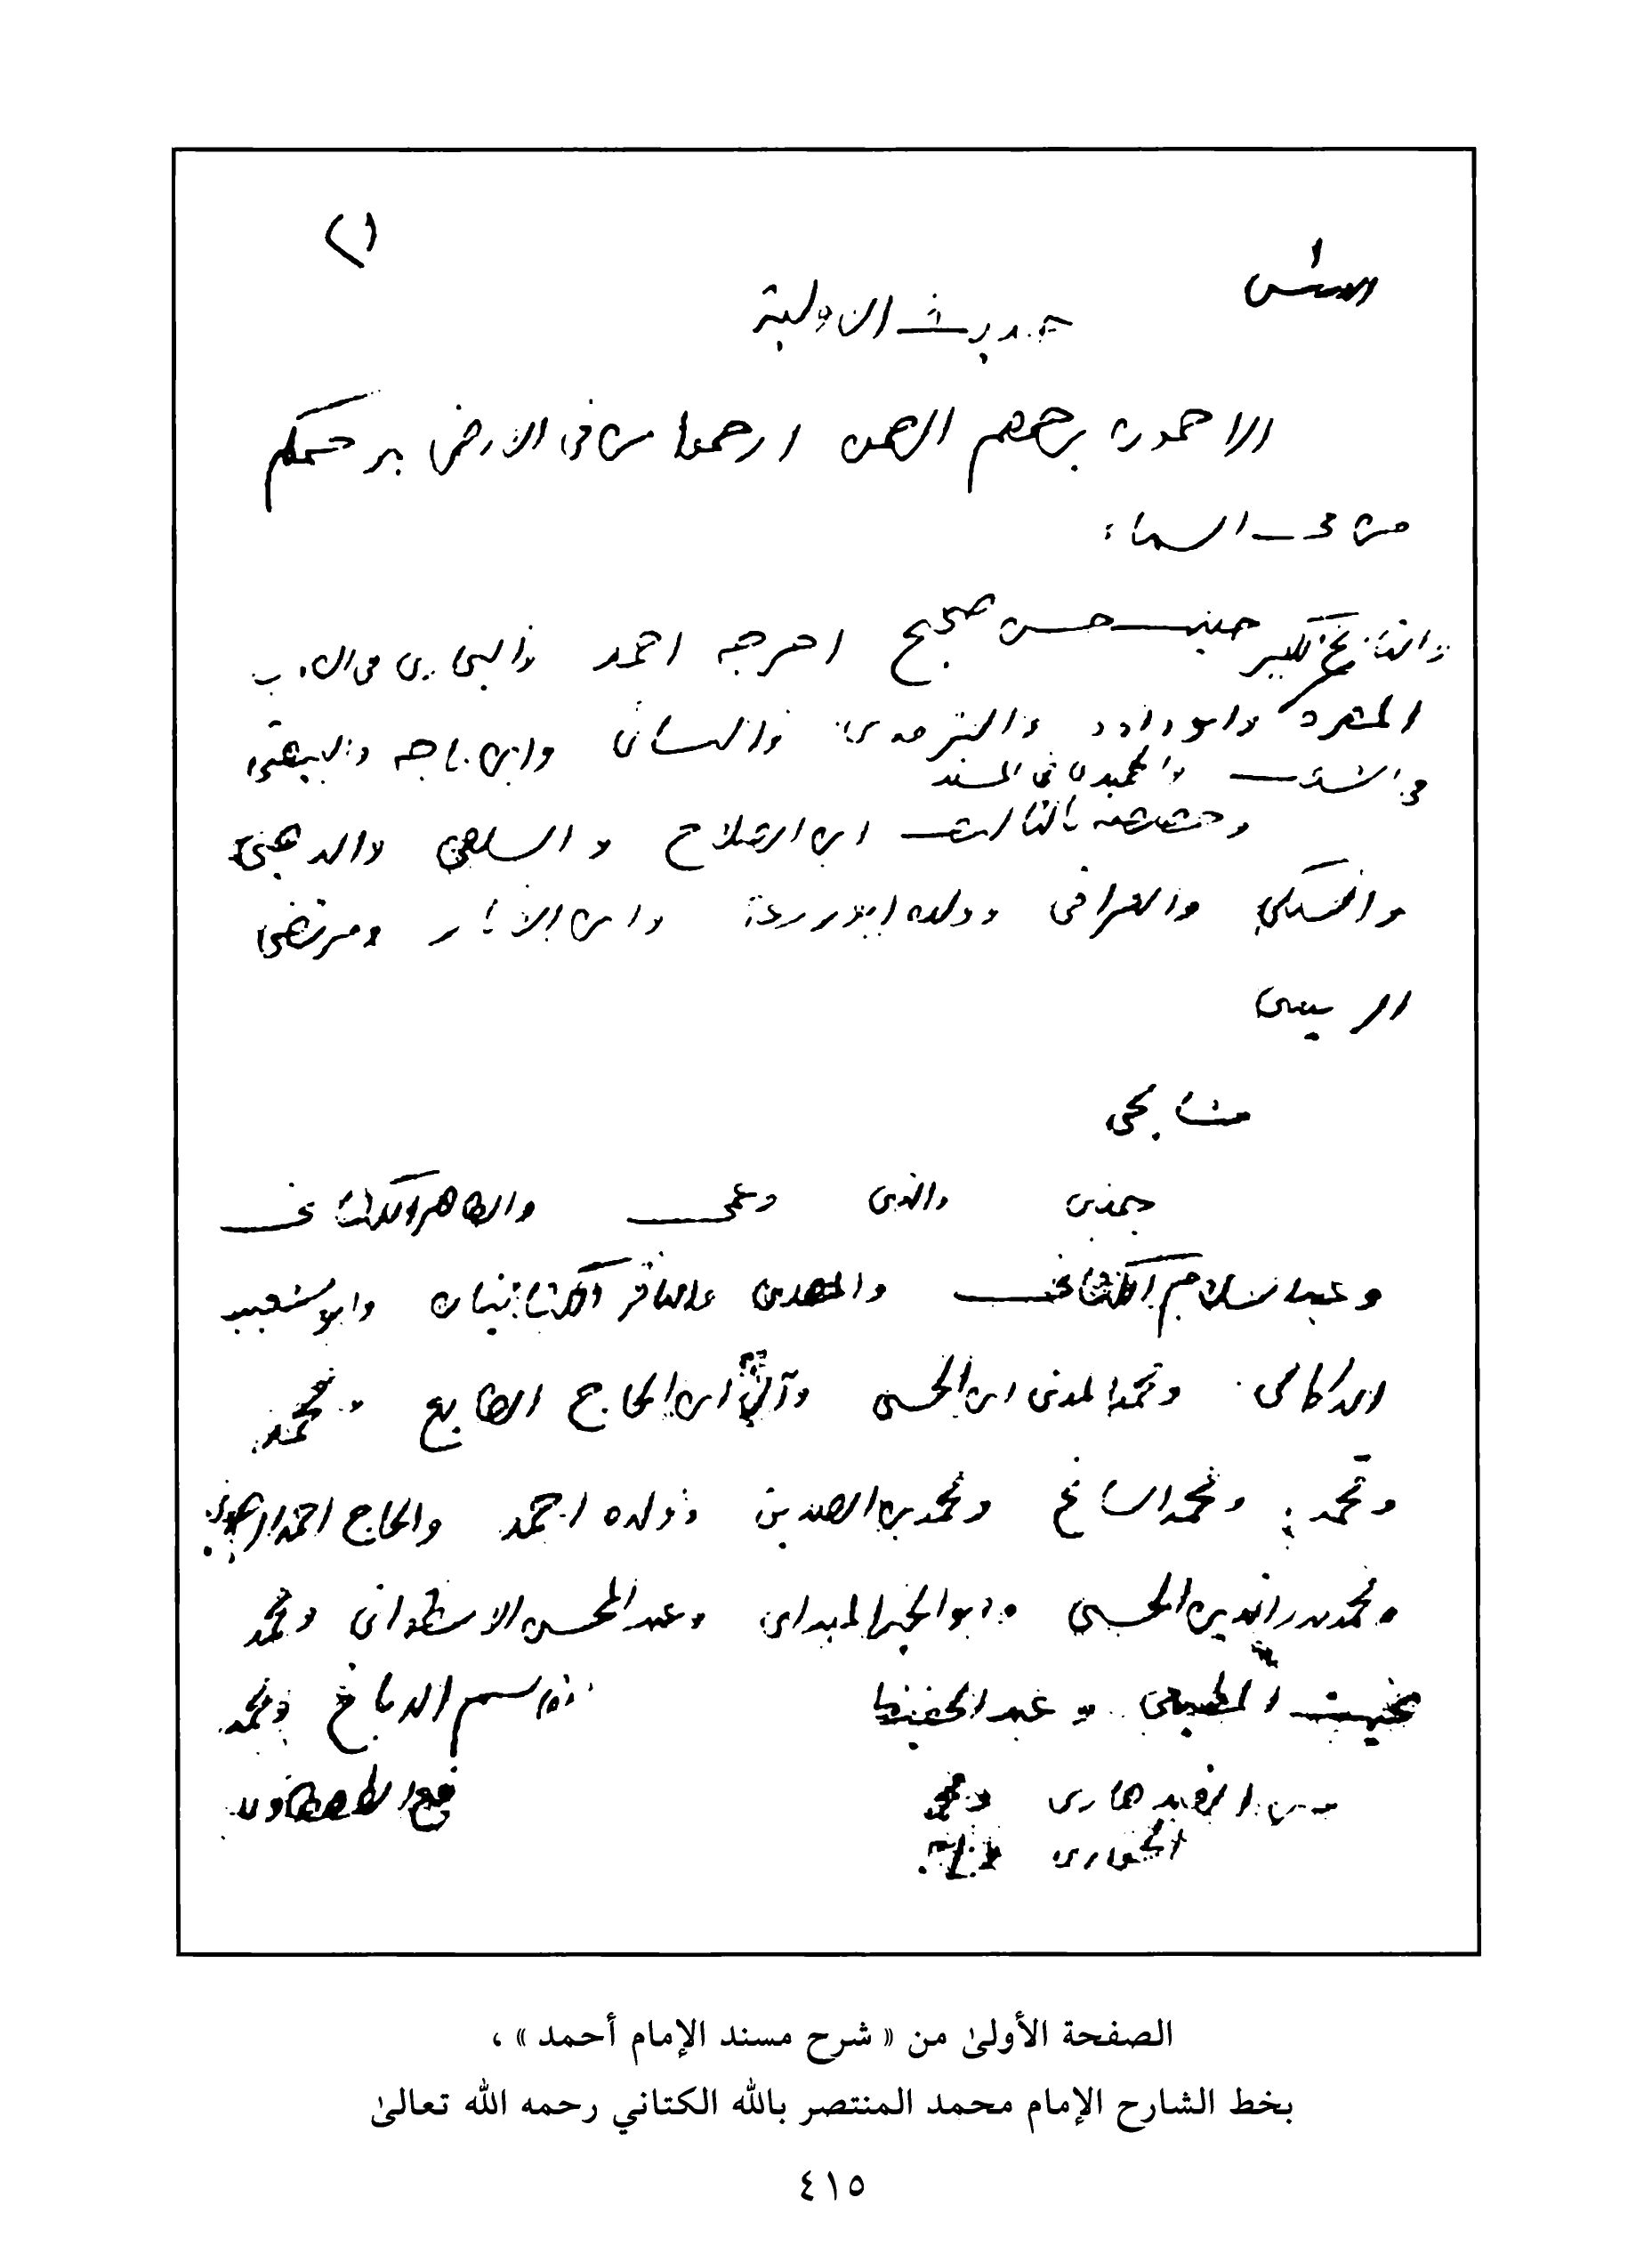 (١
حديث الاولية
الراحمون يرحمهم الرحمن ارحموا من في الارض يرحمكم
من في السماء
والتاريخ الكبير حديث حسن صحيح اخرجه احمد والبخاري في الادب
المفرد وابو داود والترمذي والنسائي وابن ماجه والبيهقي
في والحميدي في المسند
ابن الصلاح والسلفي والذهبي
والسبكي والعراقي وولده ابو زرعة وابن الابار ومرتضى
الزبيدي
مشايخي
جدي والدي وعمي والطاهر الكتاني
وعبد السلام الكتاني والمهدي والباقر الكتانيان وابو شعيب
الدكالي ومحمد المدني ابن الحسني ابن الحاج السايح ومحمد
ومحمد ومحمد السايح ومحمد بن الصديق وولده احمد والحاج احمد
ومحمد بدر الدين الحسني وابو الخير الميداني وعبد المحسن الاسطواني ومحمد
بخيت المطيعي وعبد الحفيظ الدباغ ومحمد
الصفحة الأولىٰ من « شرح مسند الإمام أحمد » ،
بخط الشارح الإمام محمد المنتصر بالله الكتاني رحمه الله تعالىٰ
٤١٥